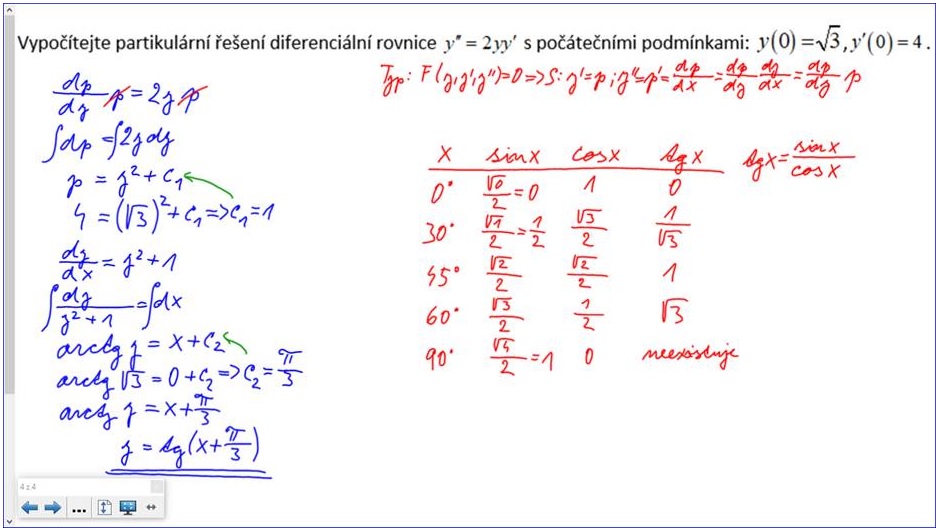 Vypočítejte partikulární řešení diferenciální rovnice y" = 2yy' s počátečními podmínkami: y(0) = √3, y'(0) = 4.
Typ: F(y,y',y'')=0 => S: y'=p ; y''=p'= dp/dx = dp/dy dy/dx = dp/dy p
dp/dy p = 2y p
∫dp = ∫2y dy
p = y² + C₁
4 = (√3)² + C₁ => C₁ = 1
dy/dx = y² + 1
∫ dy/(y² + 1) = ∫dx
arctg y = x + C₂
arctg √3 = 0 + C₂ => C₂ = π/3
arctg y = x + π/3
y = tg(x + π/3)
x sin x cos x tg x tg x = sin x/cos x
0° √0/2 = 0 1 0
30° √1/2 = 1/2 √3/2 1/√3
45° √2/2 √2/2 1
60° √3/2 1/2 √3
90° √4/2 = 1 0 neexistuje
4 z 4